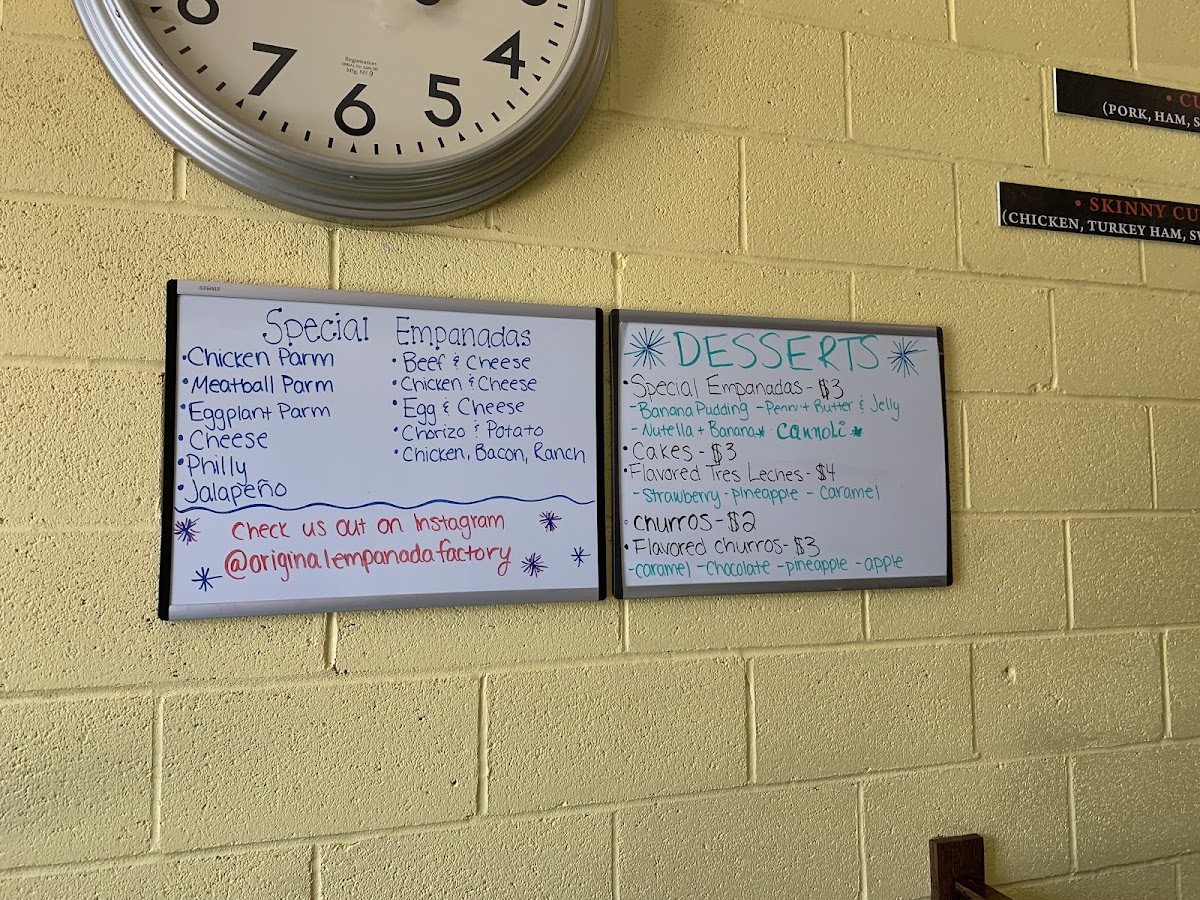 6
7
6
5
4
Mfg. No 9
• CU
(PORK, HAM, S
• SKINNY CU
(CHICKEN, TURKEY HAM, SW
Special Empanadas
•Chicken Parm
•Meatball Parm
•Eggplant Parm
•Cheese
•Philly
•Jalapeño
•Beef & Cheese
•Chicken & Cheese
•Egg & Cheese
•Chorizo & Potato
•Chicken, Bacon, Ranch
Check us out on Instagram
@originalempanadafactory
DESSERTS
•Special Empanadas - $3
-Banana Pudding -Pennut Butter & Jelly
-Nutella + Banana* Cannoli*
•Cakes - $3
•Flavored Tres Leches - $4
-Strawberry -pineapple - Caramel
•churros - $2
•Flavored churros - $3
-caramel -Chocolate -pineapple -apple